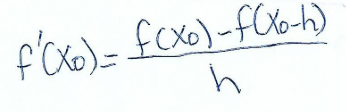 f'(x₀) = f(x₀) - f(x₀-h) / h